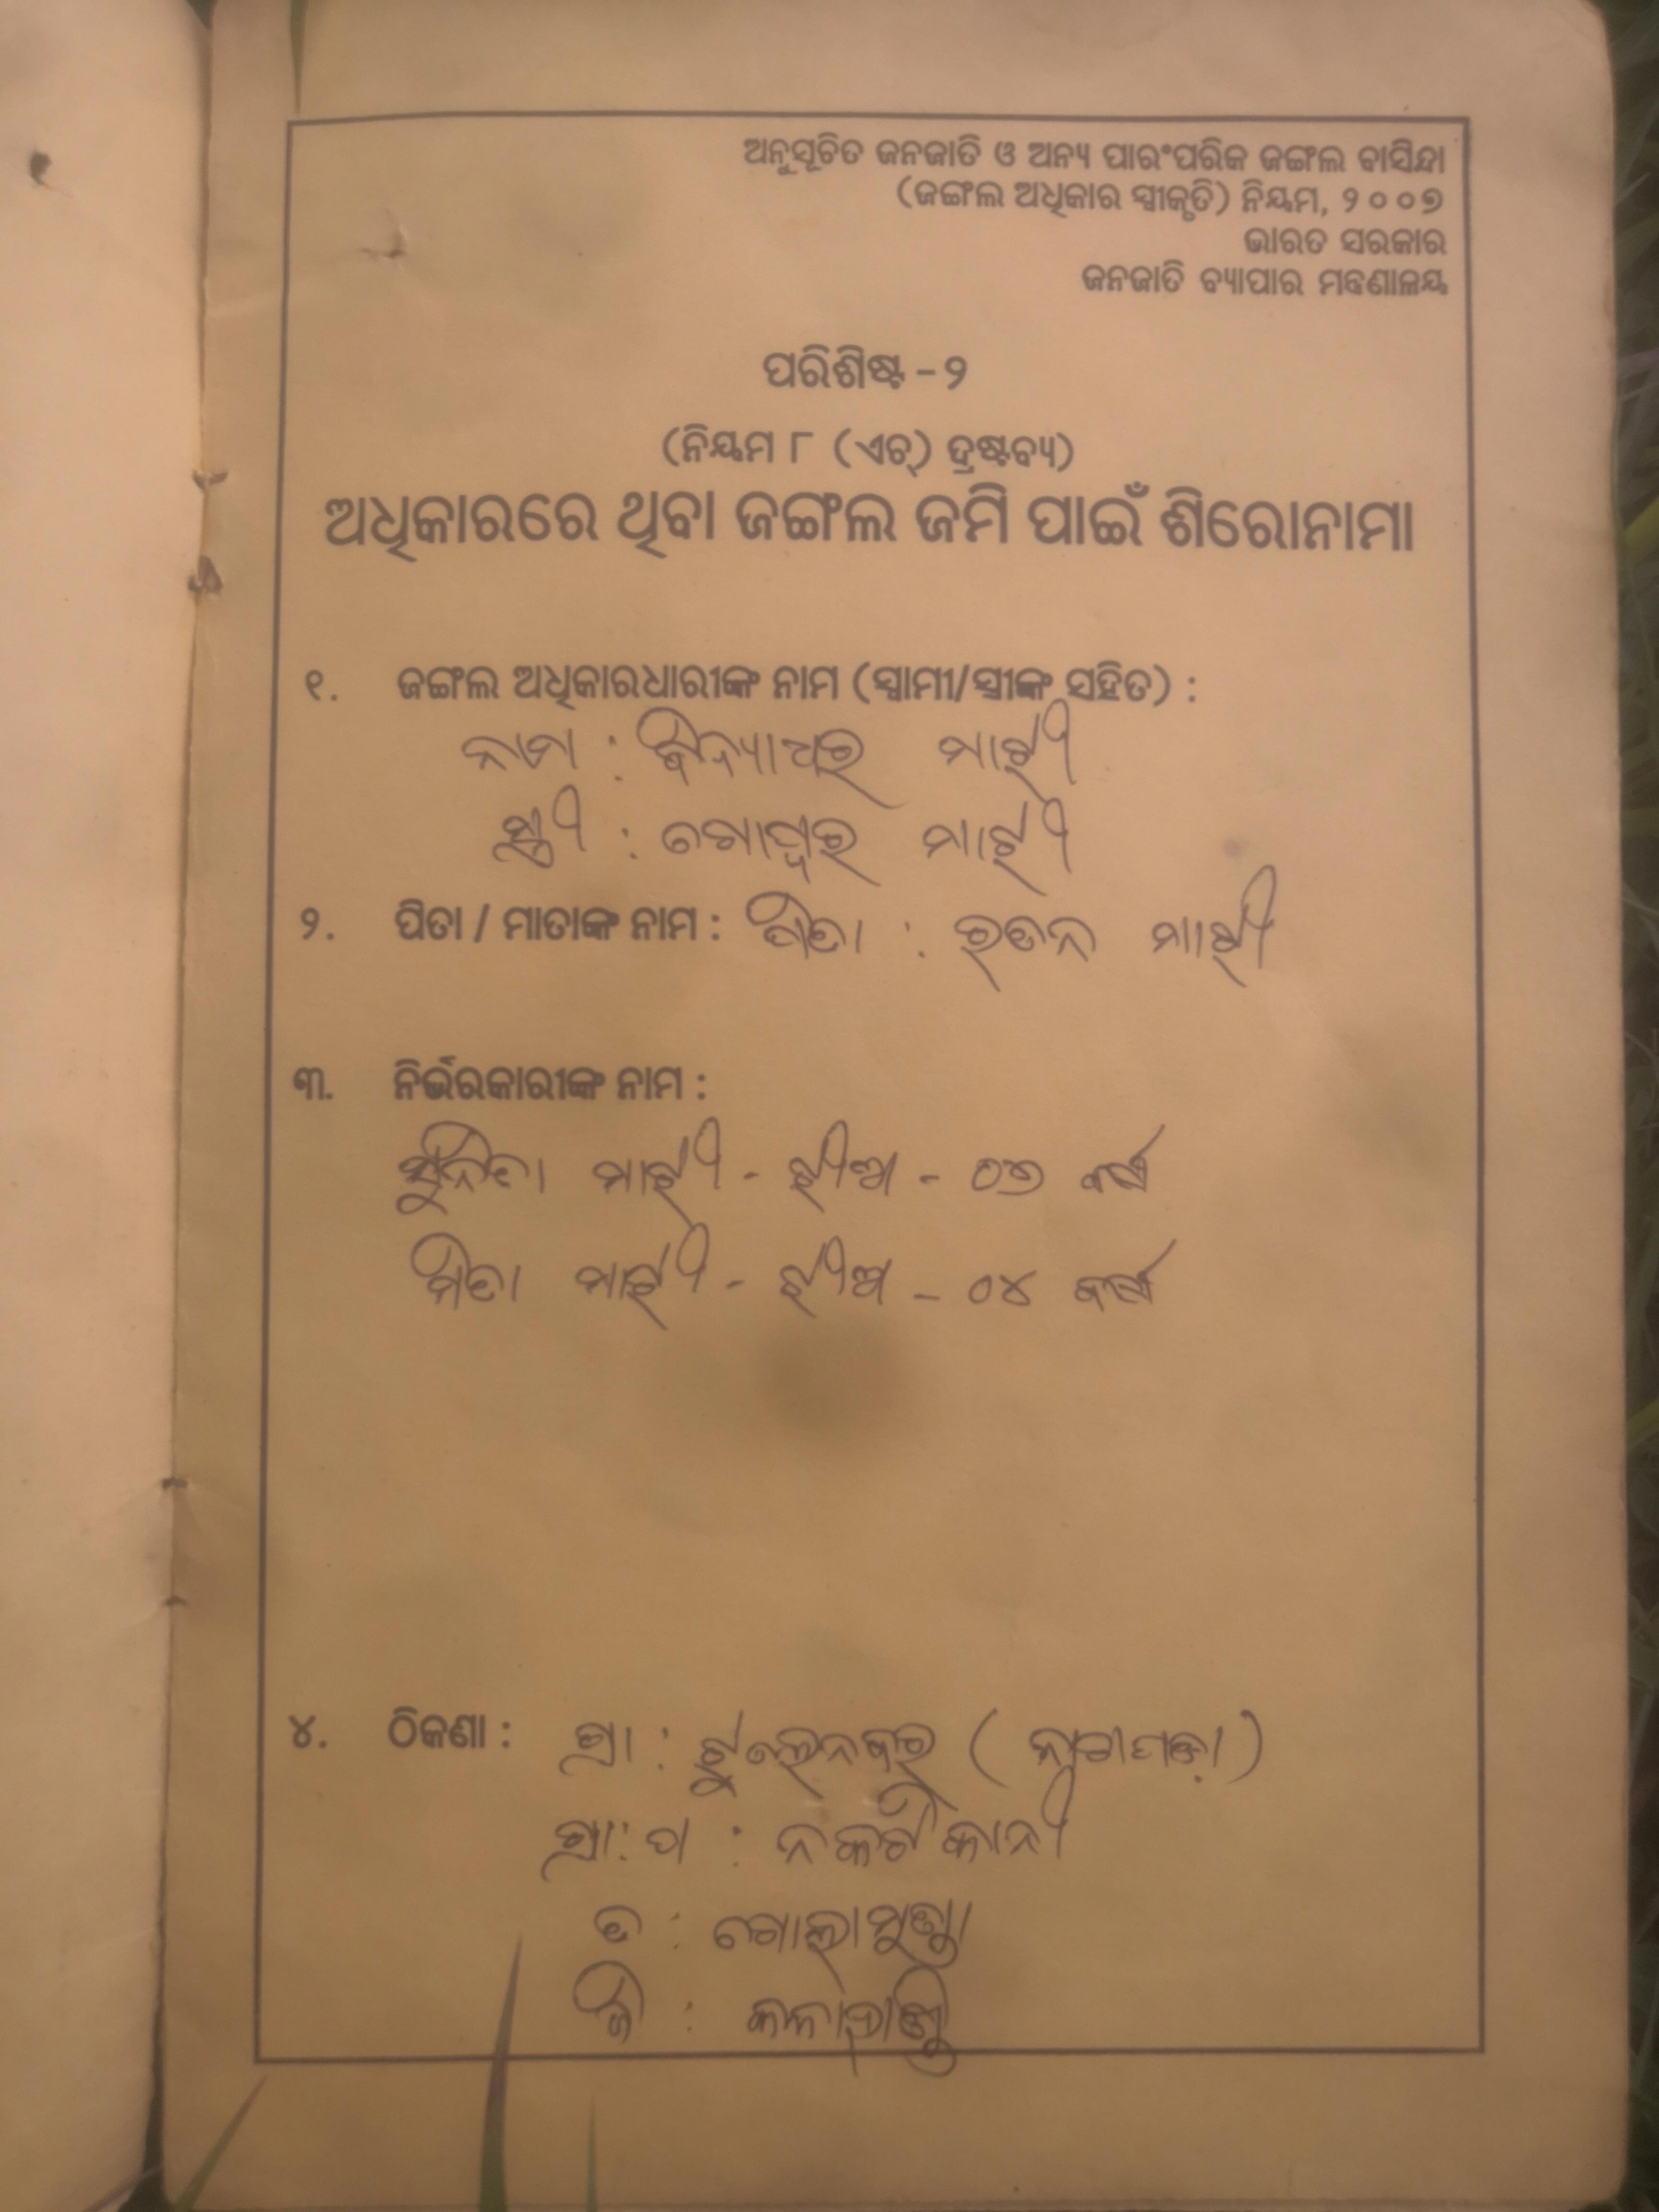 ଅନୁସୂଚିତ ଜନଜାତି ଓ ଅନ୍ୟ ପାରଂପରିକ ଜଙ୍ଗଲ ବାସିନ୍ଦା
(ଜଙ୍ଗଲ ଅଧିକାର ସ୍ୱୀକୃତି) ନିୟମ, ୨୦୦୭
ଭାରତ ସରକାର
ଜନଜାତି ବ୍ୟାପାର ମନ୍ତ୍ରଣାଳୟ
ପରିଶିଷ୍ଟ - ୨
(ନିୟମ ୮ (ଏଚ୍) ଦ୍ରଷ୍ଟବ୍ୟ)
ଅଧିକାରରେ ଥିବା ଜଙ୍ଗଲ ଜମି ପାଇଁ ଶିରୋନାମା
୧. ଜଙ୍ଗଲ ଅଧିକାରଧାରୀଙ୍କ ନାମ (ସ୍ୱାମୀ/ସ୍ତ୍ରୀଙ୍କ ସହିତ) :
ନାମ : ବିଦ୍ୟାଧର ମାଝୀ
ସ୍ତ୍ରୀ : ମାଝୀ
୨. ପିତା / ମାତାଙ୍କ ନାମ : ପିତା : ରତନ ମାଝୀ
୩. ନିର୍ଭରକାରୀଙ୍କ ନାମ :
ସୁନିତା ମାଝୀ - ଝୀଅ - ୦୬ ବର୍ଷ
ମିତା ମାଝୀ - ଝୀଅ - ୦୪ ବର୍ଷ
୪. ଠିକଣା : ଗ୍ରା :
ଗ୍ରା: ପ :
ତ : ଗୋଲାମୁଣ୍ଡା
ଜି : କଳାହାଣ୍ଡି